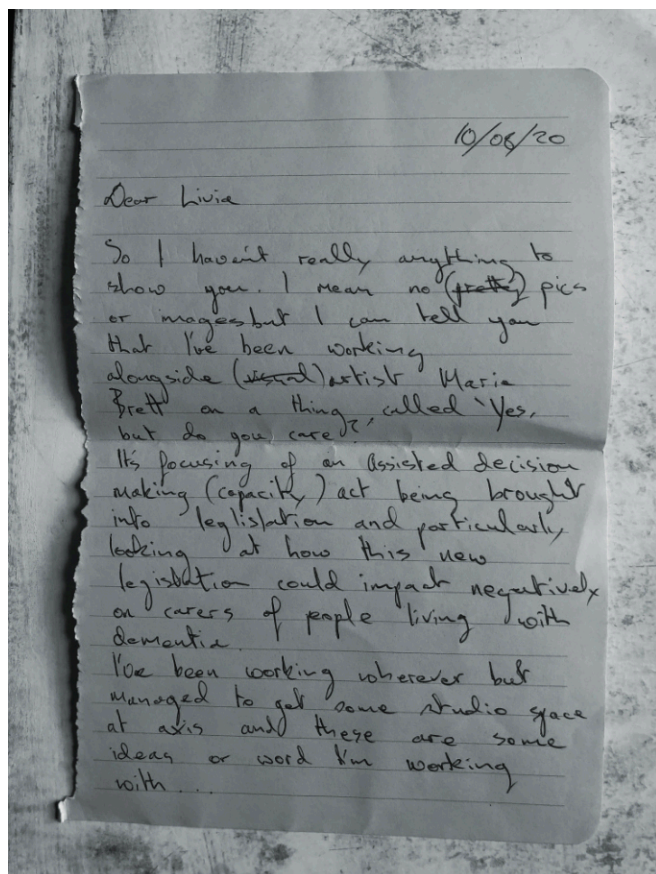 10/06/20
Dear Livia
So I haven't really anything to
show you. I mean no (pretty) pics
or images but I can tell you
that I've been working
alongside (visual) artist Marie
Brett on a thing called 'Yes,
but do you care?'
It's focusing of an Assisted decision
making (capacity) act being brought
into leglislation and particularly
looking at how this new
legislation could impact negatively
on carers of people living with
dementia.
I've been working wherever but
managed to get some studio space
at axis and these are some
ideas or word I'm working
with...